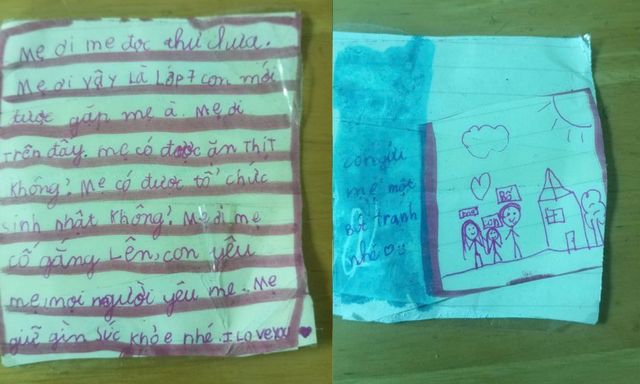 Mẹ ơi mẹ đọc thư chưa.
Mẹ ơi vậy là lớp 7 con mới
được gặp mẹ à. Mẹ ơi
trên đây. mẹ có được ăn thịt
không? Mẹ có được tổ chức
sinh nhật không? Mẹ ơi mẹ
cố gắng lên, con yêu
mẹ, mọi người yêu mẹ. Mẹ
giữ gìn sức khỏe nhé. I Love you ♥
con gửi
mẹ một
bức tranh
nhé ♡☺
Bố